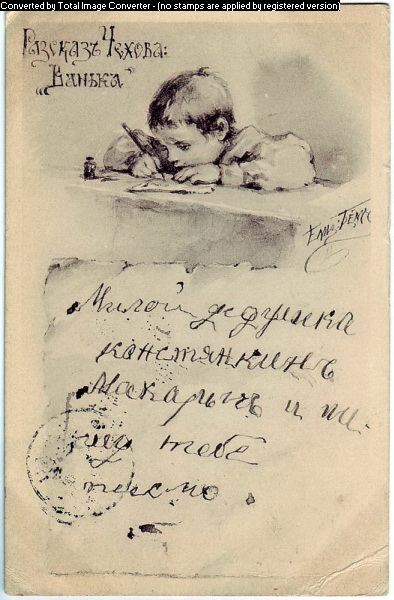 Converted by Total Image Converter - (no stamps are applied by registered version)
Разсказъ Чехова:
„Ванька"
Елис. Бёмъ
Милой дедушка
канстянкинъ
Макарычъ и пи
шу тебе
письмо.